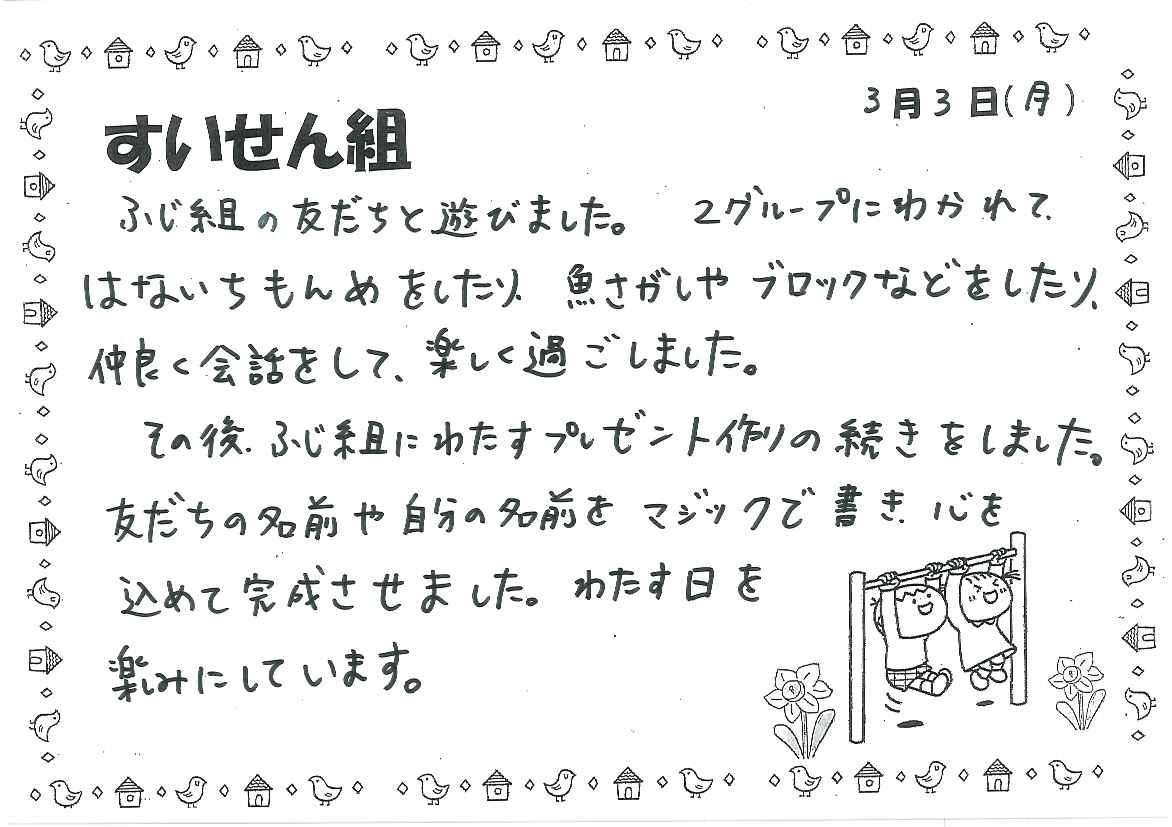 3月3日(月)
すいせん組
ふじ組の友だちと遊びました。 2グループにわかれて、
はないちもんめをしたり、魚さがしやブロックなどをしたり、
仲良く会話をして、楽しく過ごしました。
その後、ふじ組にわたすプレゼント作りの続きをしました。
友だちの名前や自分の名前をマジックで書き、心を
込めて完成させました。わたす日を
楽しみにしています。